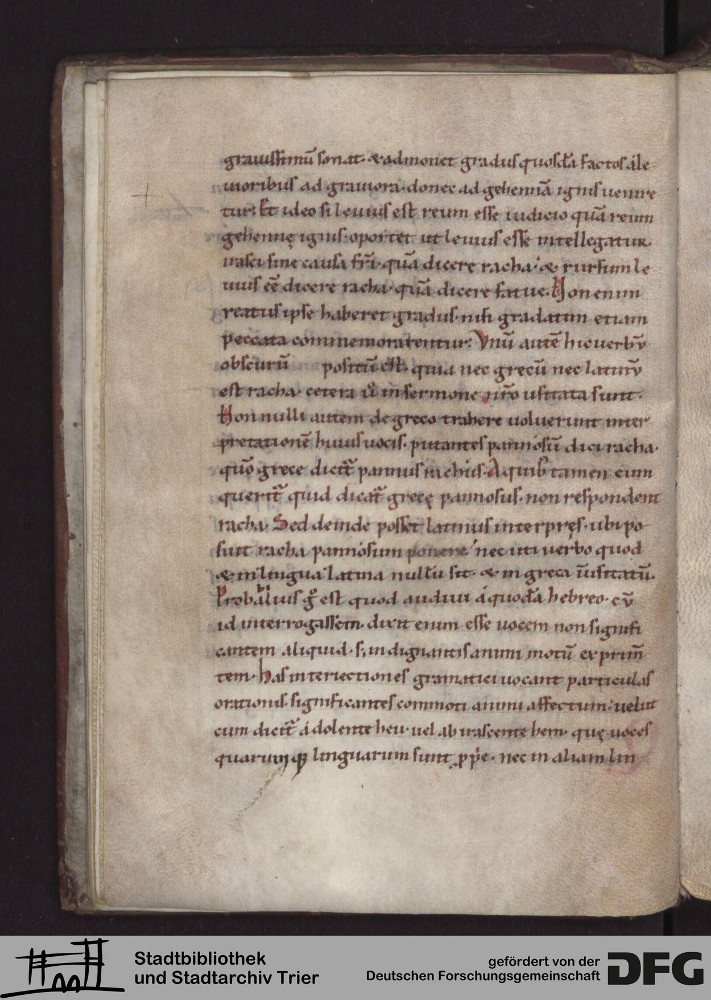 grauissimū sonat· & admonet gradus quosdā factos á le
uioribus ad grauiora· donec ad gehennā ignis uenire
tur· Et ideo si leuius est reum esse iudicio quā reum
gehennę ignis· oportet ut leuius esse intellegatur
irasci sine causa frī· quā dicere racha· & rursum le
uius eē dicere racha· quā dicere fatue. Non enim
reatus ipse haberet gradus· nisi gradatim etiam
peccata commemorarentur. Vnū autē hic uerbū
obscurū positū est· quia nec grecū nec latinū
est racha· cetera ū in sermone nr̄o usitata sunt·
Non nulli autem de greco trahere uoluerunt inter
pretationē huius uocis· putantes pannosū dici racha·
quō grece dicit̄ pannus rachus· A quib tamen cum
querit̄ quid dicat̄ grecę pannosus· non respondent
racha· Sed deinde posset latinus interpręs· ubi po
suit racha pannosum ponere nec uti uerbo quod
& in lingua latina nullū sit· & in greca īusitatū·
Probalius ḡ est quod audiui á quodā hebreo· cū
id interrogassem· dixit enim esse uocem non signifi
cantem aliquid· s; indignantis animi motū exprim̄
tem· has interiectiones gramatici uocant particulas
orationis· significantes commoti animi affectum· uelut
cum dicit̄ á dolente heu· uel ab irascente hem· quę uoces
quarumq; linguarum sunt ppe· nec in aliam lin
Stadtbibliothek
und Stadtarchiv Trier
gefördert von der
Deutschen Forschungsgemeinschaft
DFG